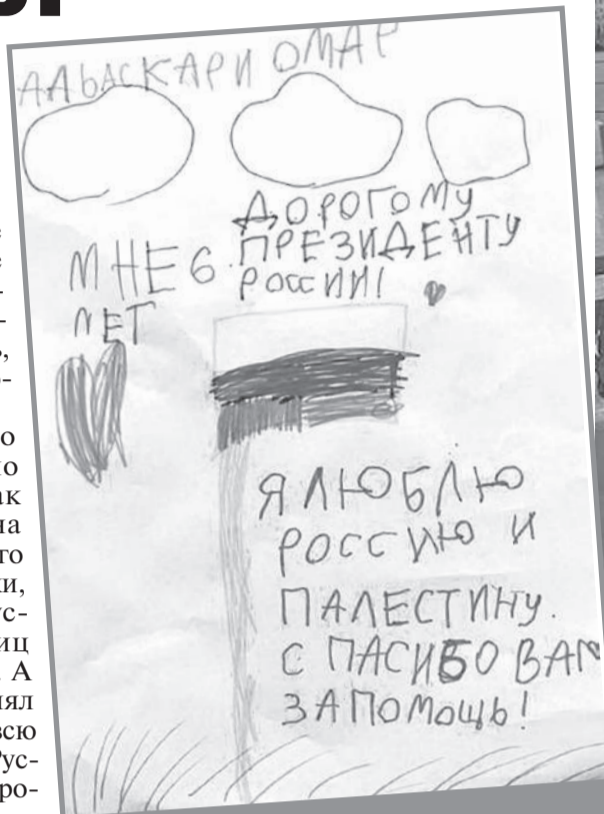 АЛЬАСКАРИ ОМАР
ДОРОГОМУ
ПРЕЗИДЕНТУ
РОССИИ!
МНЕ 6
ЛЕТ
Я ЛЮБЛЮ
РОССИЮ И
ПАЛЕСТИНУ.
С ПАСИБО ВАМ
ЗА ПОМОЩЬ!
А
всю